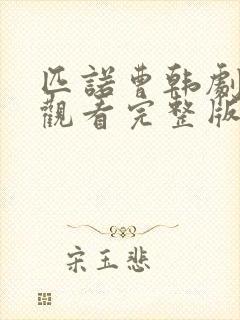 匹諾曹韓劇
觀看完整版
宋玉悲